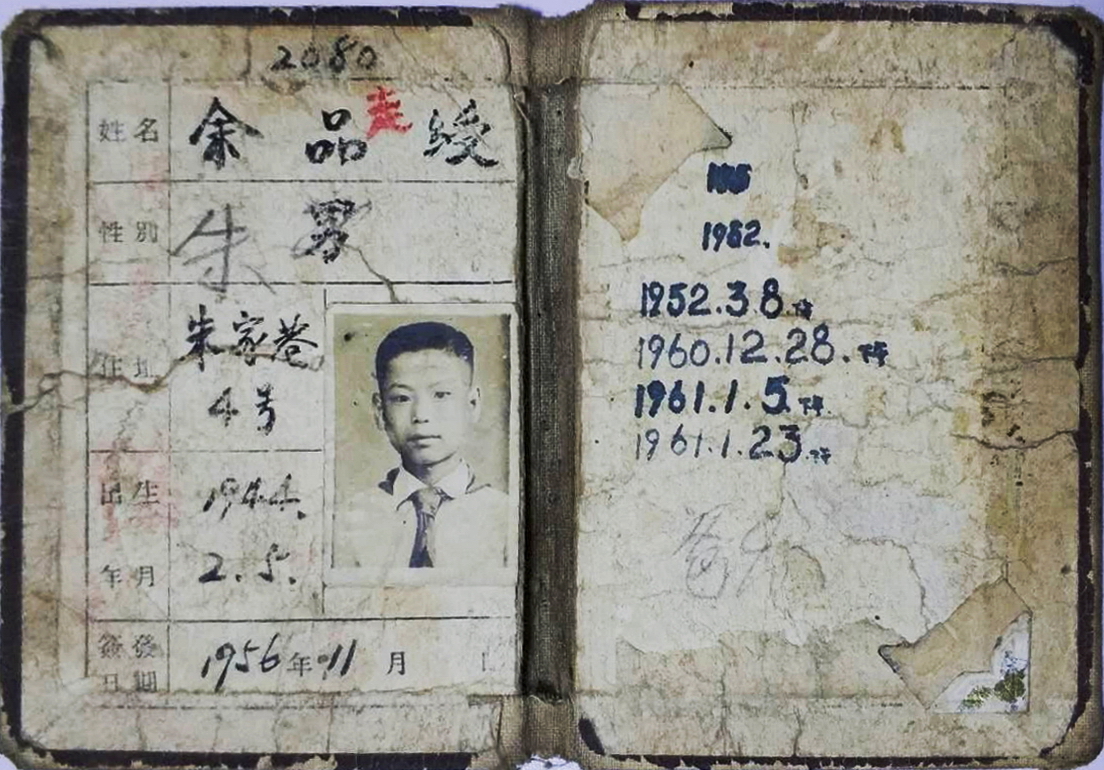 2080
姓名 余品綬
走
性別 男
朱
住址 朱家巷
4号
出生
年月
1944.
2.5.
簽發
日期
1956年11月
1952.
1952.3.8
1960.12.28.下午
1961.1.5.下午
1961.1.23.下午